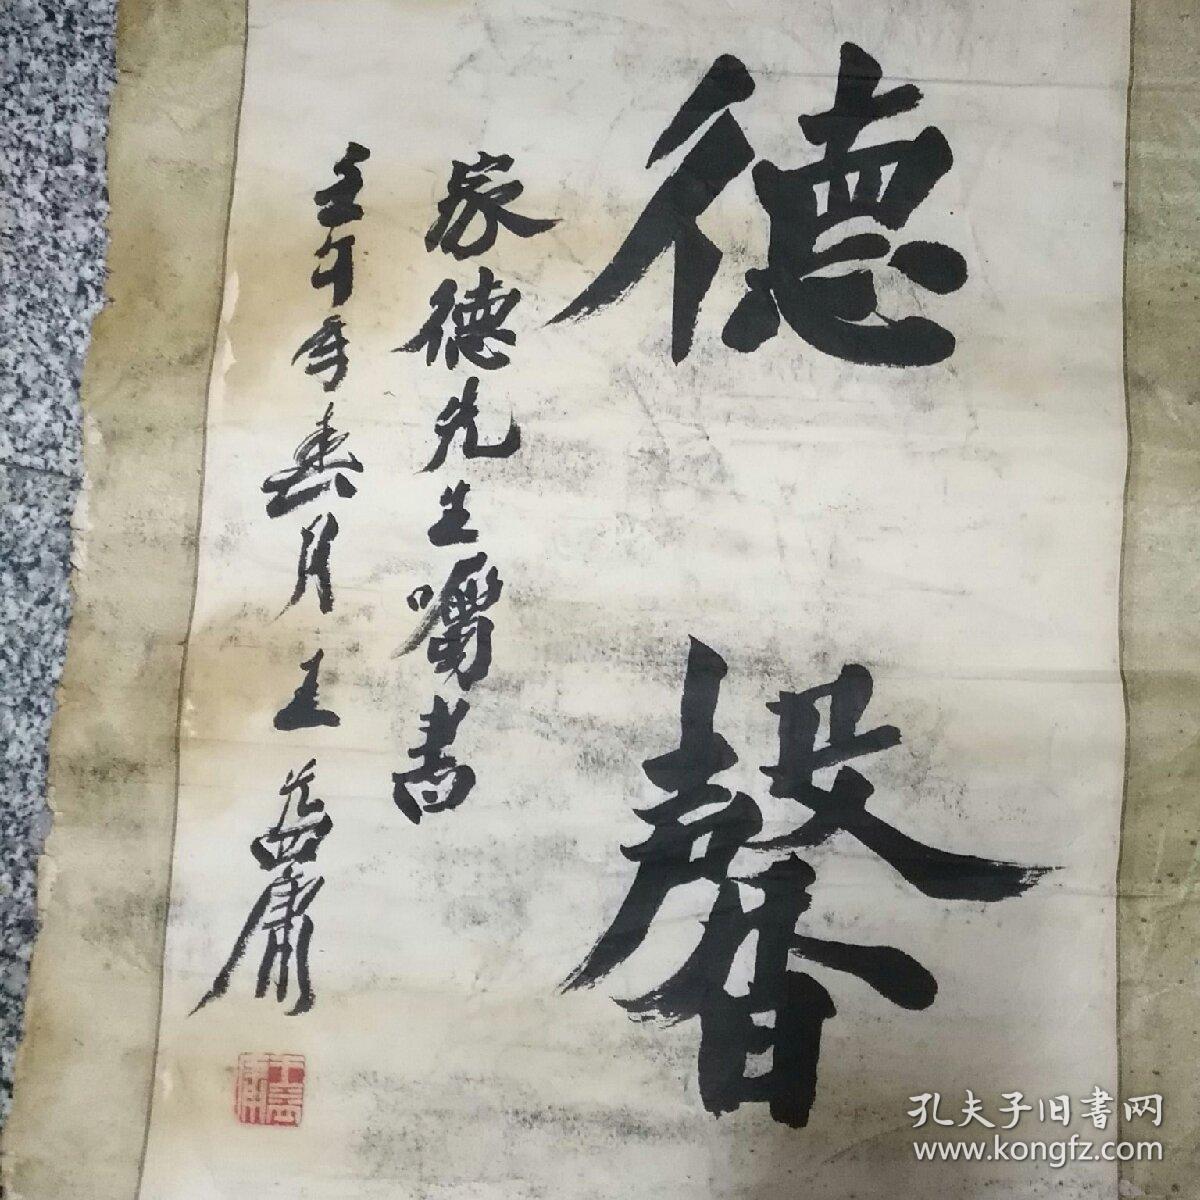 德馨
家德先生嘱书
壬午年春月王益庸
王益庸
孔夫子旧書网
www.kongfz.com